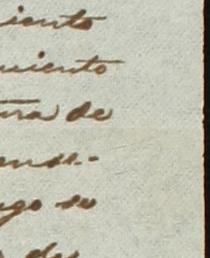 iento
uiento
tura de
ende-
ngo su
de